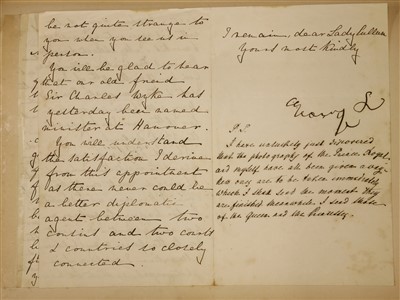 be not quite strange to
you when you see us in
person.
You will be glad to hear
that our old friend
Sir Charles Wyke has
yesterday been named
minister at Hanover.
You will understand
the satisfaction I derive
from this appointment
as there never could be
a better diplomatic
agent between two
cousins and two courts
& countries so closely
connected.
I remain, dear Lady Cullum
Yours most Kindly
George R
P.S.
I have unluckily just discovered
that the photographs of the Prince Royal
and myself have all been given away
new ones are to be taken immediately
which I shall send the moment they
are finished meanwhile I send those
of the Queen and the Princesses.